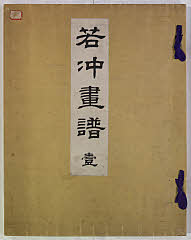 若冲畫譜
壹